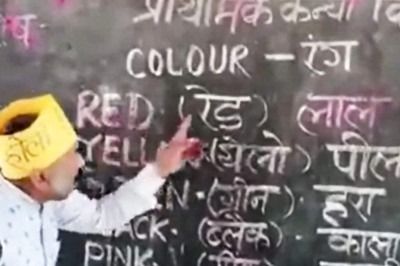 प्राथमिक कन्या
COLOUR - रंग
RED (रेड) लाल
YELLO (यैलो) पील
(ग्रीन) हरा
ACK. (ब्लैक) काला
PINK.